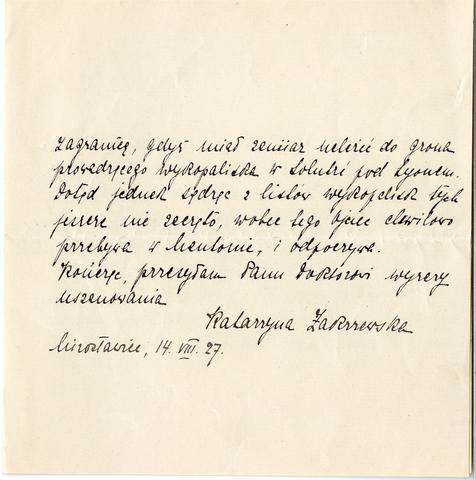 Zagranicę, gdyż miał zamiar należeć do grona
prowadzącego wykopaliska w Solutré pod Lyonem.
Dotąd jednak sądząc z listów wykopalisk tych
jeszcze nie zaczęto, wobec tego ojciec chwilowo
przebywa w Mentonie, i odpoczywa.
Kończąc, przesyłam Panu Doktorowi wyrazy
uszanowania
Katarzyna Zakrzewska
Mirosławice, 14. VIII. 27.